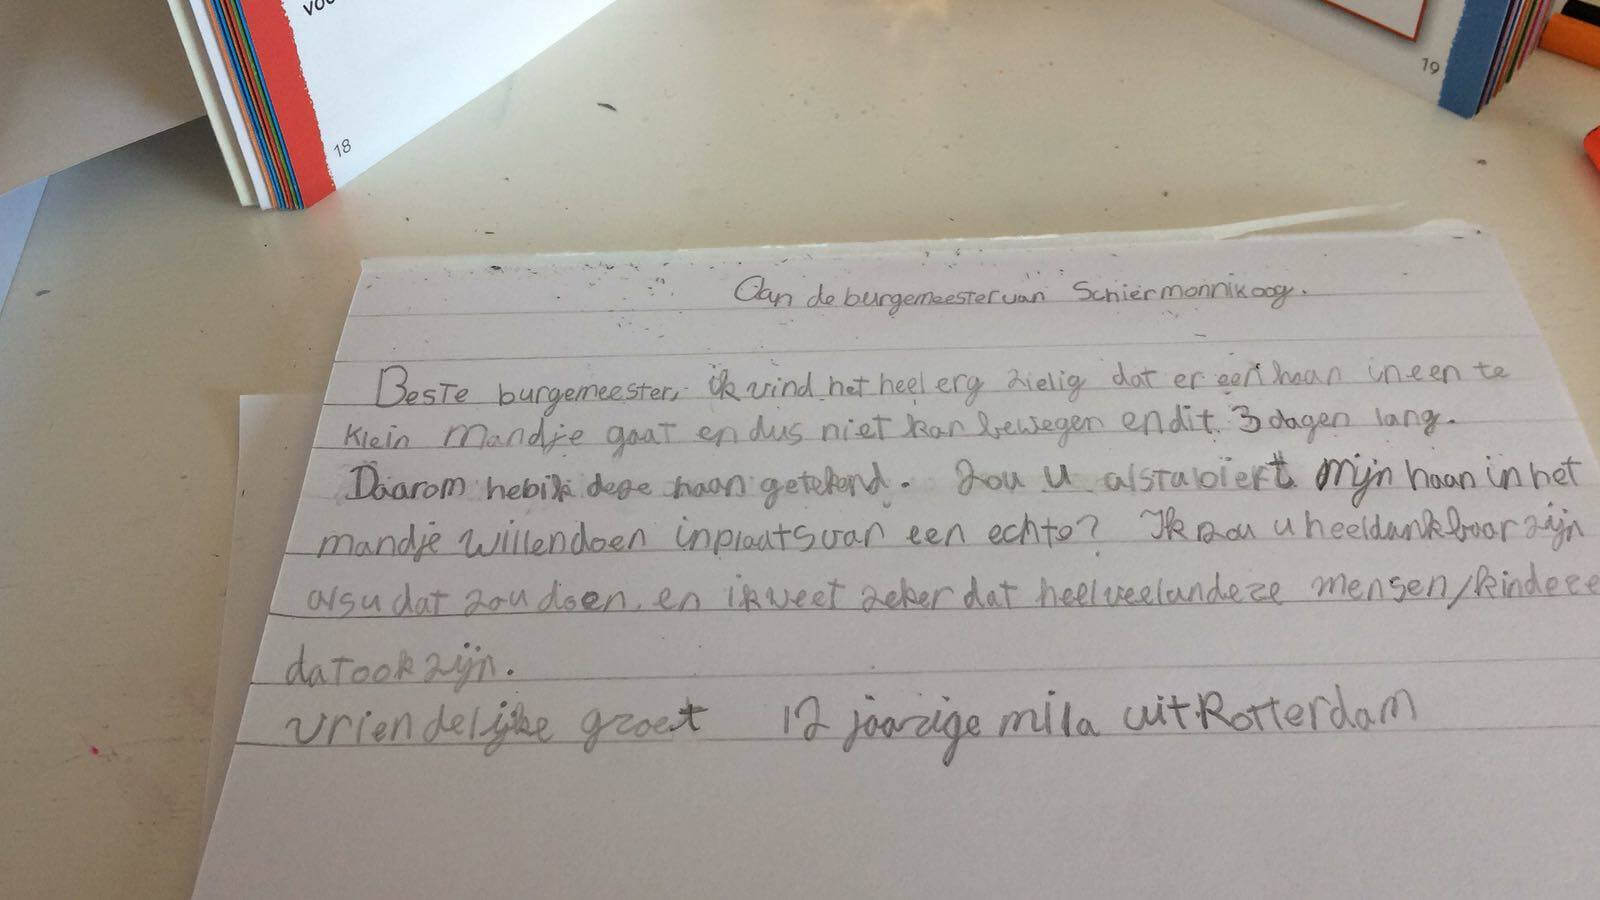 voo
18
19
Aan de burgemeester van Schiermonnikoog.
Beste burgemeester, ik vind het heel erg zielig dat er een haan in een te
klein mandje gaat en dus niet kan bewegen en dit 3 dagen lang.
Daarom heb ik deze haan getekend. Zou u alstublieft mijn haan in het
mandje willen doen inplaats van een echte? Ik zou u heel dankbaar zijn
als u dat zou doen. en ik weet zeker dat heel veel andeze mensen/kindeze
dat ook zijn.
vriendelijke groet 12 jaarige mila uit Rotterdam